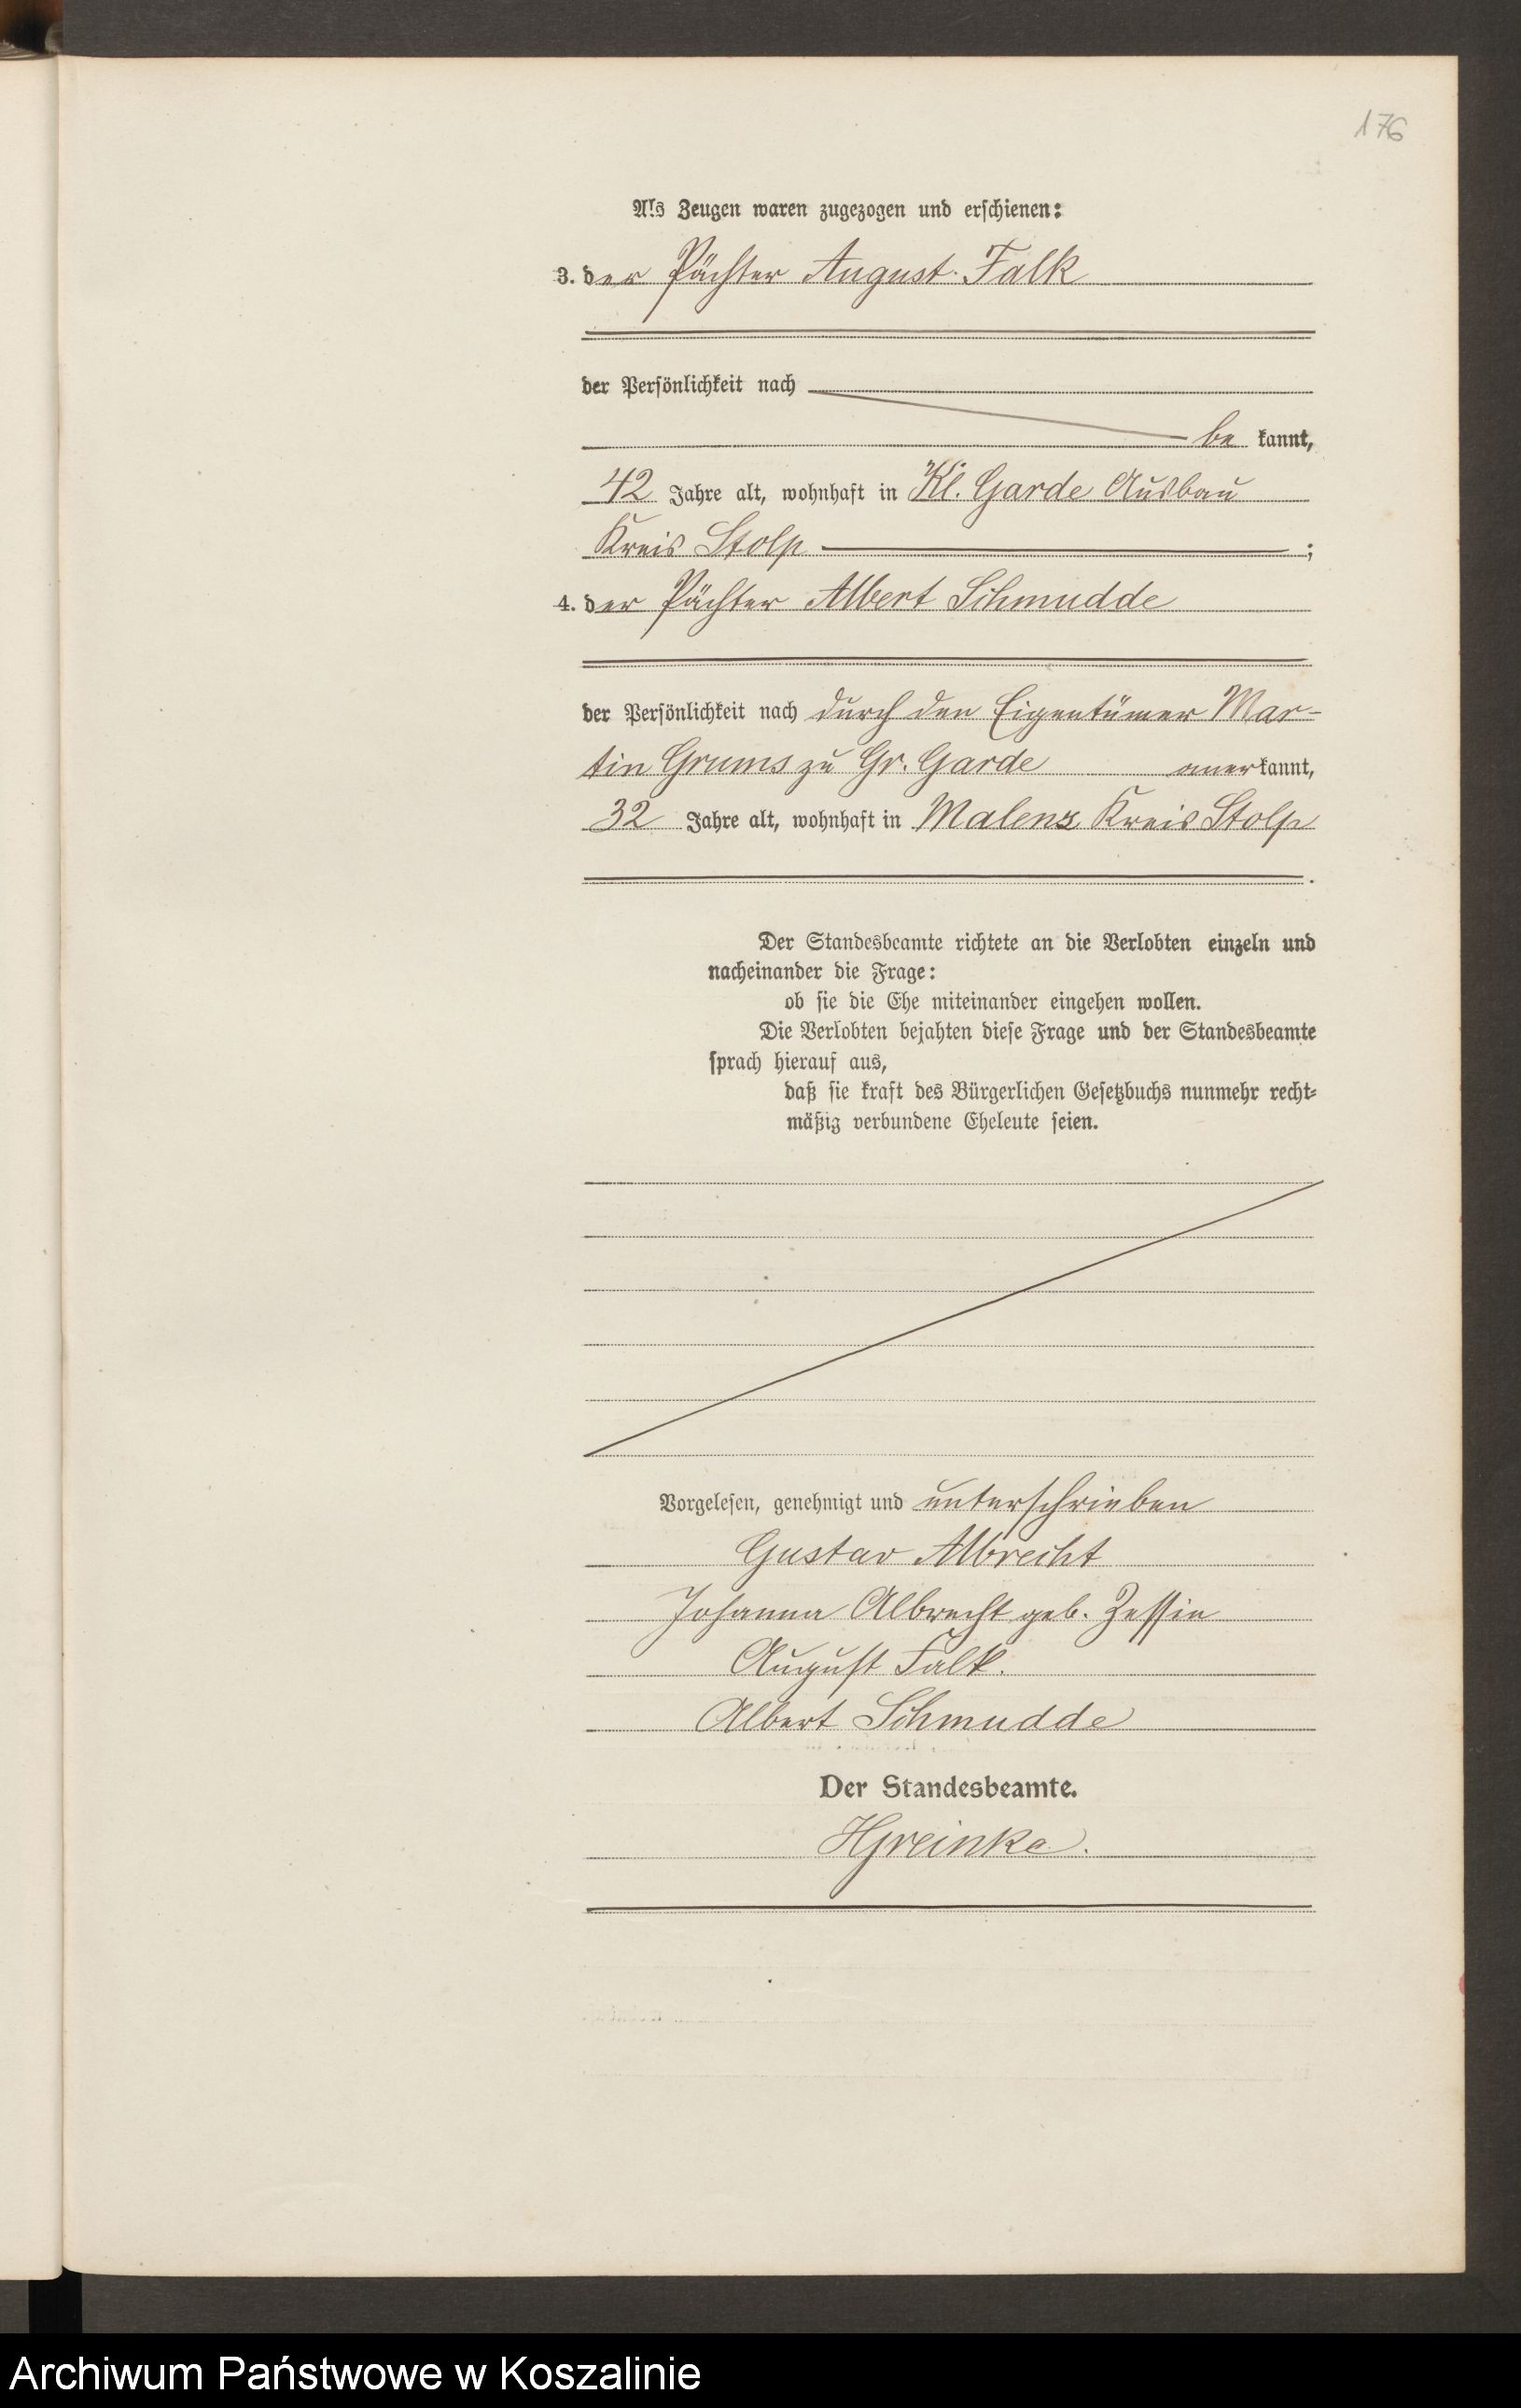 176
Als Zeugen waren zugezogen und erschienen:
3. der Pächter August Falk
der Persönlichkeit nach
be kannt,
42 Jahre alt, wohnhaft in Kl. Garde Ausbau
Kreis Stolp ;
4. der Pächter Albert Schmudde
der Persönlichkeit nach durch den Eigentümer Mar-
tin Grums zu Gr. Garde anerkannt,
32 Jahre alt, wohnhaft in Malenz Kreis Stolp
.
Der Standesbeamte richtete an die Verlobten einzeln und
nacheinander die Frage:
ob sie die Ehe miteinander eingehen wollen.
Die Verlobten bejahten diese Frage und der Standesbeamte
sprach hierauf aus,
daß sie kraft des Bürgerlichen Gesetzbuchs nunmehr recht-
mäßig verbundene Eheleute seien.
Vorgelesen, genehmigt und unterschrieben
Gustav Albrecht
Johanna Albrecht geb. Zessin
August Falk.
Albert Schmudde
Der Standesbeamte.
HGreinke.
Archiwum Państwowe w Koszalinie